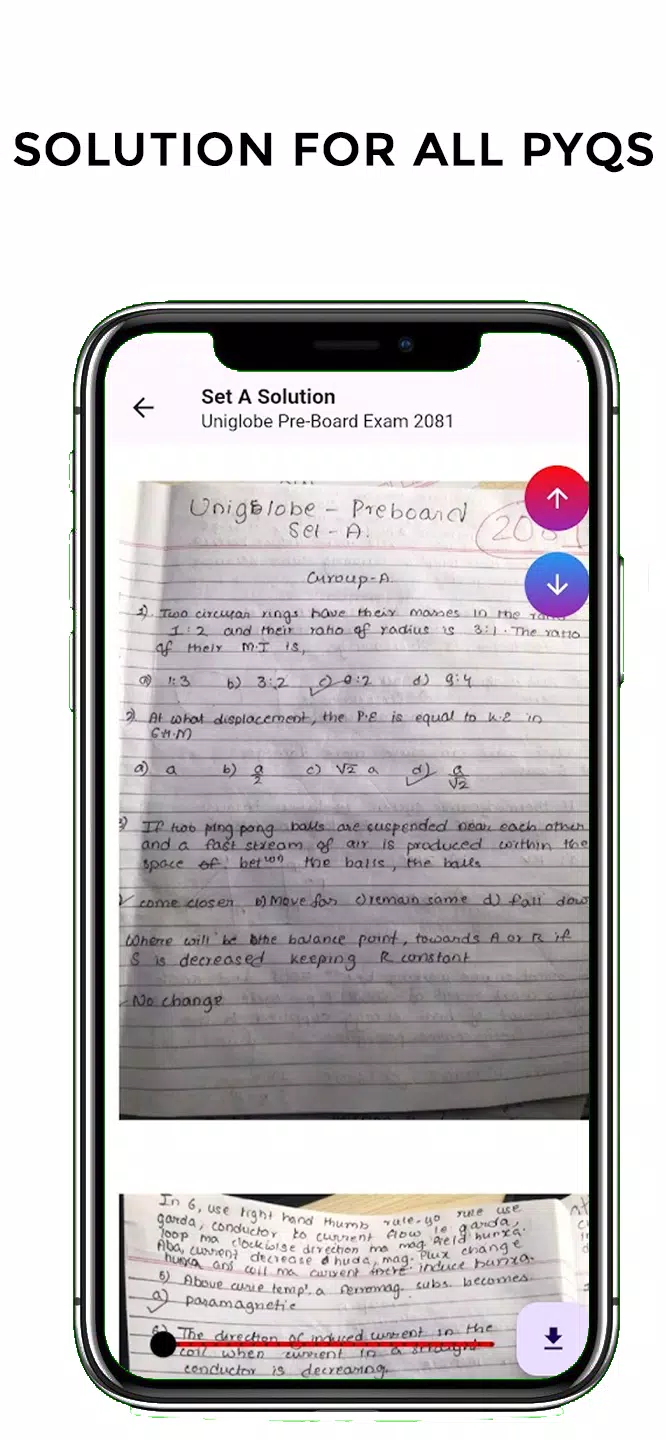 SOLUTION FOR ALL PYQS
Set A Solution
Uniglobe Pre-Board Exam 2081
Uniglobe - Preboard
Set - A.
2081
Group-A
1). Two circular rings have their masses in the ratio
1:2 and their ratio of radius is 3:1. The ratio
of their M.I is,
a) 1:3 b) 3:2 c) 9:2 d) 9:4
2). At what displacement, the P.E is equal to k.E in
S.H.M
a) a b) a/2 c) √2 a d) a/√2
3) If two ping pong balls are suspended near each other
and a fast stream of air is produced within the
space of betwn the balls, the balls
come closer b) Move far c) remain same d) fall down
Where will be the balance point, towards A or B if
S is decreased keeping R constant
No change
In 6, use right hand thumb rule. yo rule use
garda, conductor to current flow le garda,
loop ma clockwise direction ma mag. field hunxa.
Aba, current decrease huda, mag. flux change
hunxa ani coil ma current induce hunxa.
5) Above curie temp. a ferromag. subs. becomes
a) paramagnetic
6) The direction of induced current in the
coil when current in a straight
conductor is decreasing.